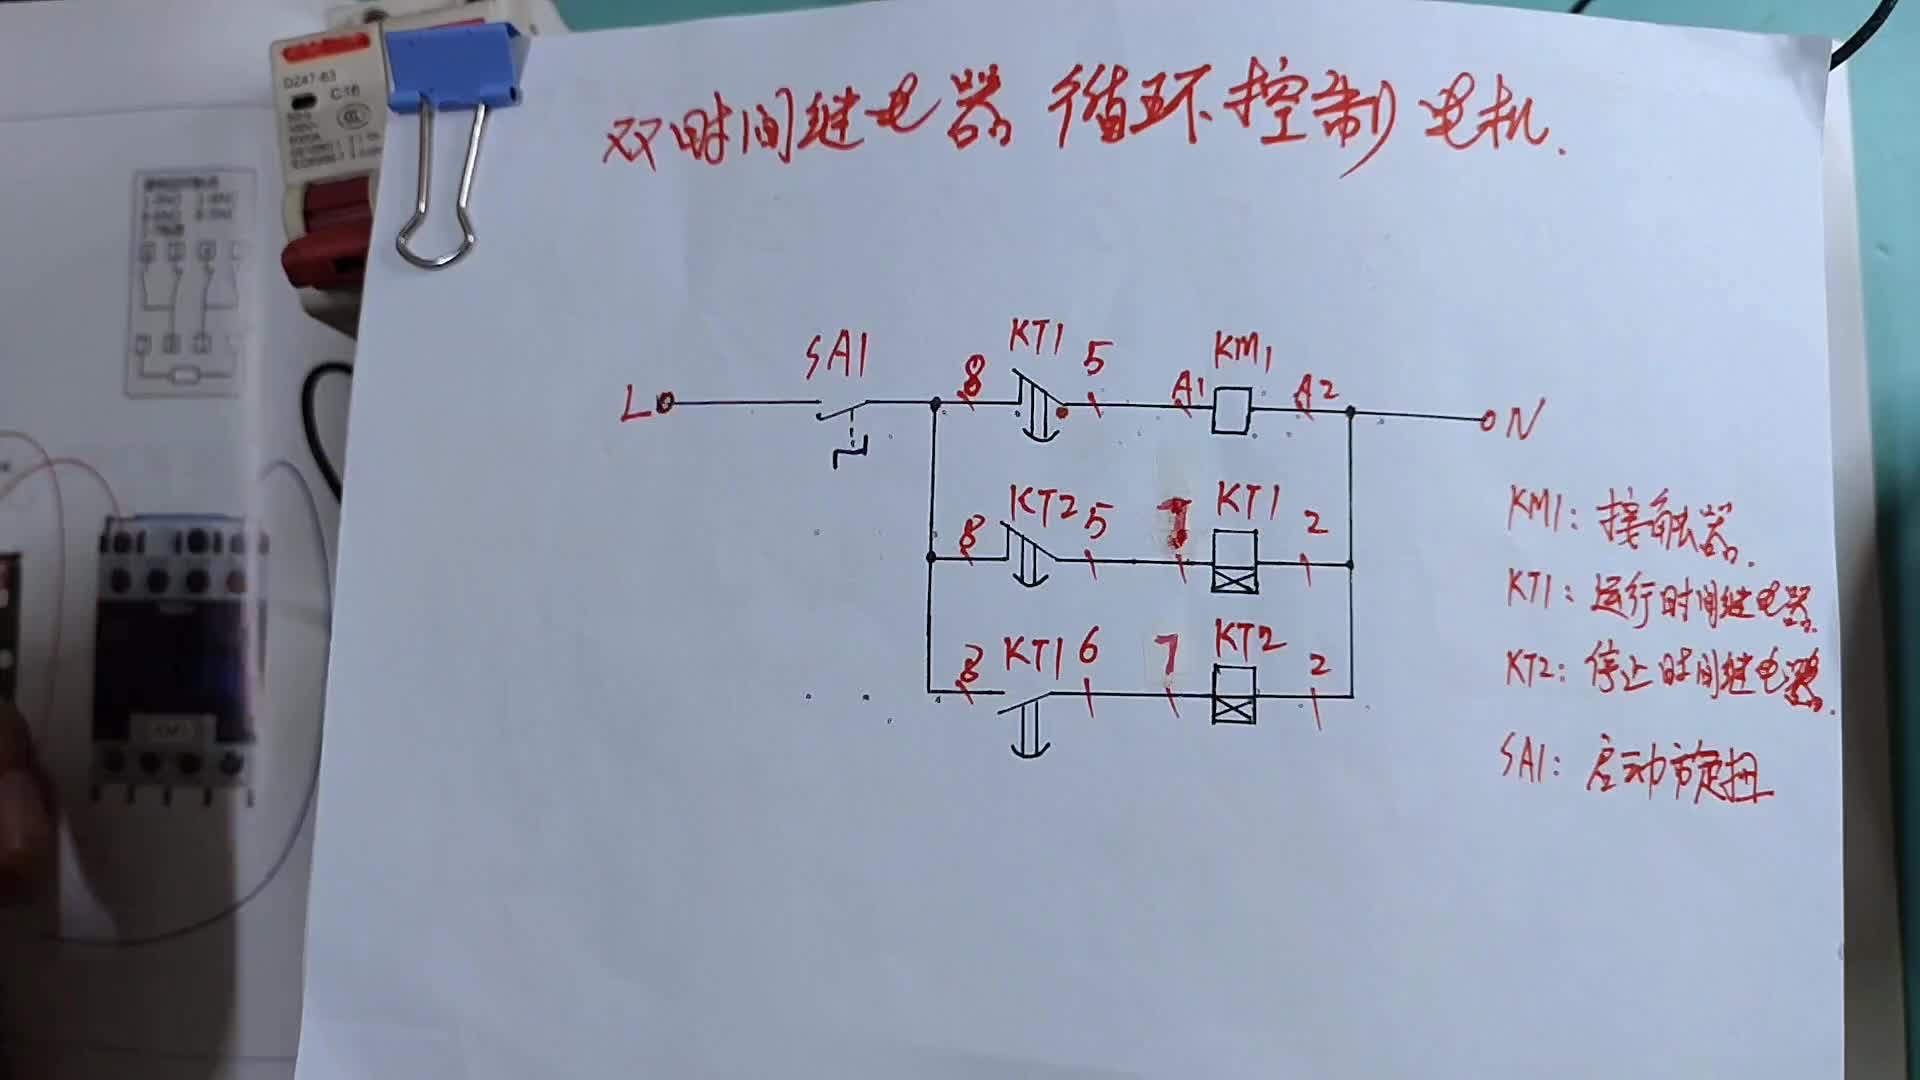 双时间继电器循环控制电机.
DZ47-63
C16
SA1
8
KT1
5
A1
KM1
A2
L
N
8
KT2
5
7
KT1
2
8
KT1
6
7
KT2
2
KM1: 接触器.
KT1: 运行时间继电器.
KT2: 停止时间继电器.
SA1: 启动旋扭
KM1